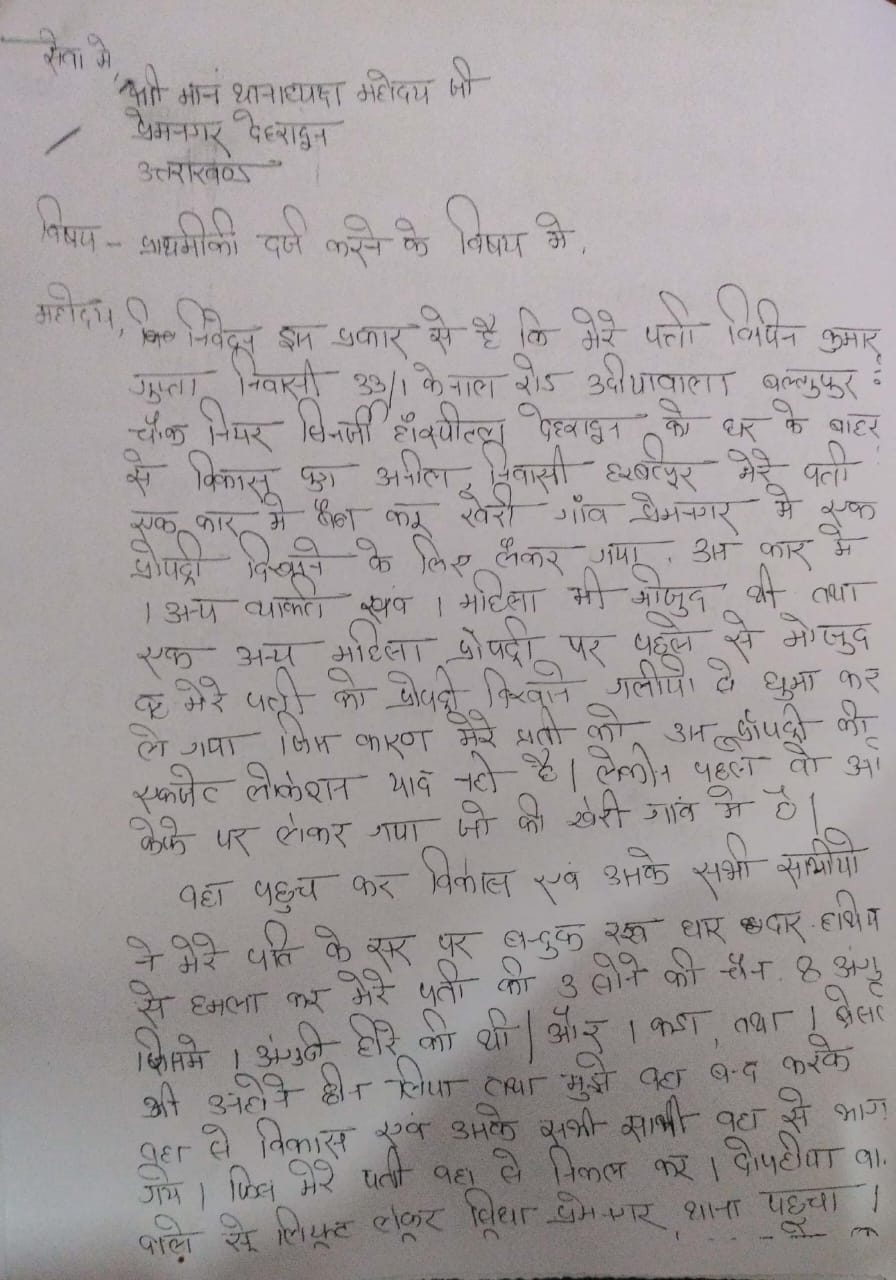 सेवा मे,
श्री मान थानाध्यक्ष महोदय जी
प्रेमनगर देहरादुन
उत्तराखण्ड
विषय - प्राथमीकी दर्ज करने के विषय मे,
महोदय, निवेदन इस प्रकार से है कि मेरे पती विपिन कुमार
गुप्ता निवासी 33/1 केनाल रोड उदीयावाला बल्लुपुर
चौक नियर सिनर्जी हॉस्पीटल देहरादुन को घर के बाहर
से विकास पुत्र अनील, निवासी हरबर्टपुर मेरे पती
एक कार मे बैठा कर खेरी गाँव प्रेमनगर मे एक
प्रोपट्री दिखाने के लिए लेकर गया. उस कार मे
1 अन्य व्यक्ति एवंव 1 महिला भी मोजुद थी तथा
एक अन्य महिला प्रोपट्री पर पहेले से मोजुद
मेरे पती को प्रोपट्री गलीयो से घुमा कर
ले गया जिस कारण मेरे पती को उस प्रोपट्री की
एकजेट लोकेशन याद नही है। लेकीन पहले वो
केफे पर लेकर गया जो की खेरी गांव मे है।
वहा पहुच कर विकास एवं उसके सभी साथीयो
ने मेरे पति के सर पर बन्दुक रख धार दार
से हमला कर मेरे पती की 3 सोने की चैन. 8
जिसमे 1 अंगुठी हीरे की थी। और 1 कडा, तथा 1
भी उन्होने छीन लिया तथा मुझे वहा बन्द करके
वहा से विकास एवंव उसके सभी साथी वहा से भाग
गये। फिर मेरे पती वहा से निकल कर 1 दोपहीया
वाले से लिफ्ट लेकर सिधा प्रेमनगर थाना पहुचा।